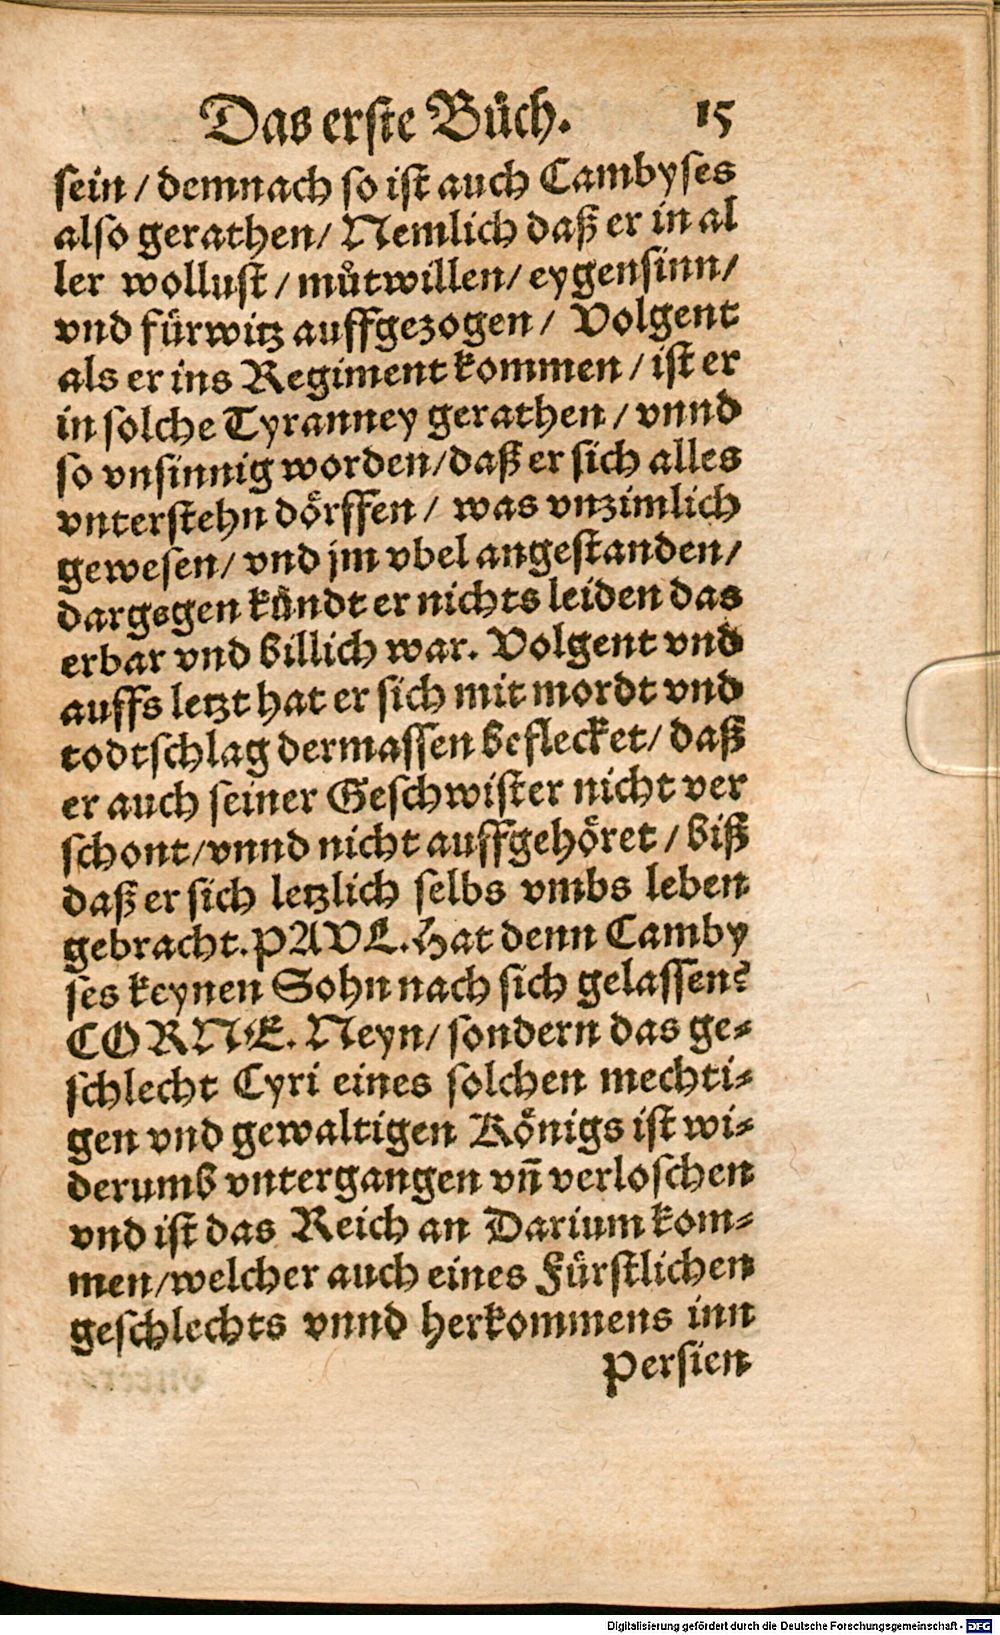 Das erste Bůch. 15
sein / demnach so ist auch Cambyses
also gerathen/ Nemlich daß er in al
ler wollust / můtwillen/ eygensinn/
vnd fürwitz auffgezogen / Volgent
als er ins Regiment kommen / ist er
in solche Tyranney gerathen / vnnd
so vnsinnig worden/daß er sich alles
vnterstehn dörffen / was vnzimlich
gewesen/ vnd jm vbel angestanden/
dargegen kündt er nichts leiden das
erbar vnd billich war. Volgent vnd
auffs letzt hat er sich mit mordt vnd
todtschlag dermassen beflecket/ daß
er auch seiner Geschwister nicht ver
schont/vnnd nicht auffgehöret / biß
daß er sich letzlich selbs vmbs leben
gebracht. PAVL. Hat denn Camby
ses keynen Sohn nach sich gelassen?
CORNE. Neyn/ sondern das ge-
schlecht Cyri eines solchen mechti-
gen vnd gewaltigen Königs ist wi-
derumb vntergangen vñ verloschen
vnd ist das Reich an Darium kom-
men/welcher auch eines Fürstlichen
geschlechts vnnd herkommens inn
Persien
Digitalisierung gefördert durch die Deutsche Forschungsgemeinschaft - DFG